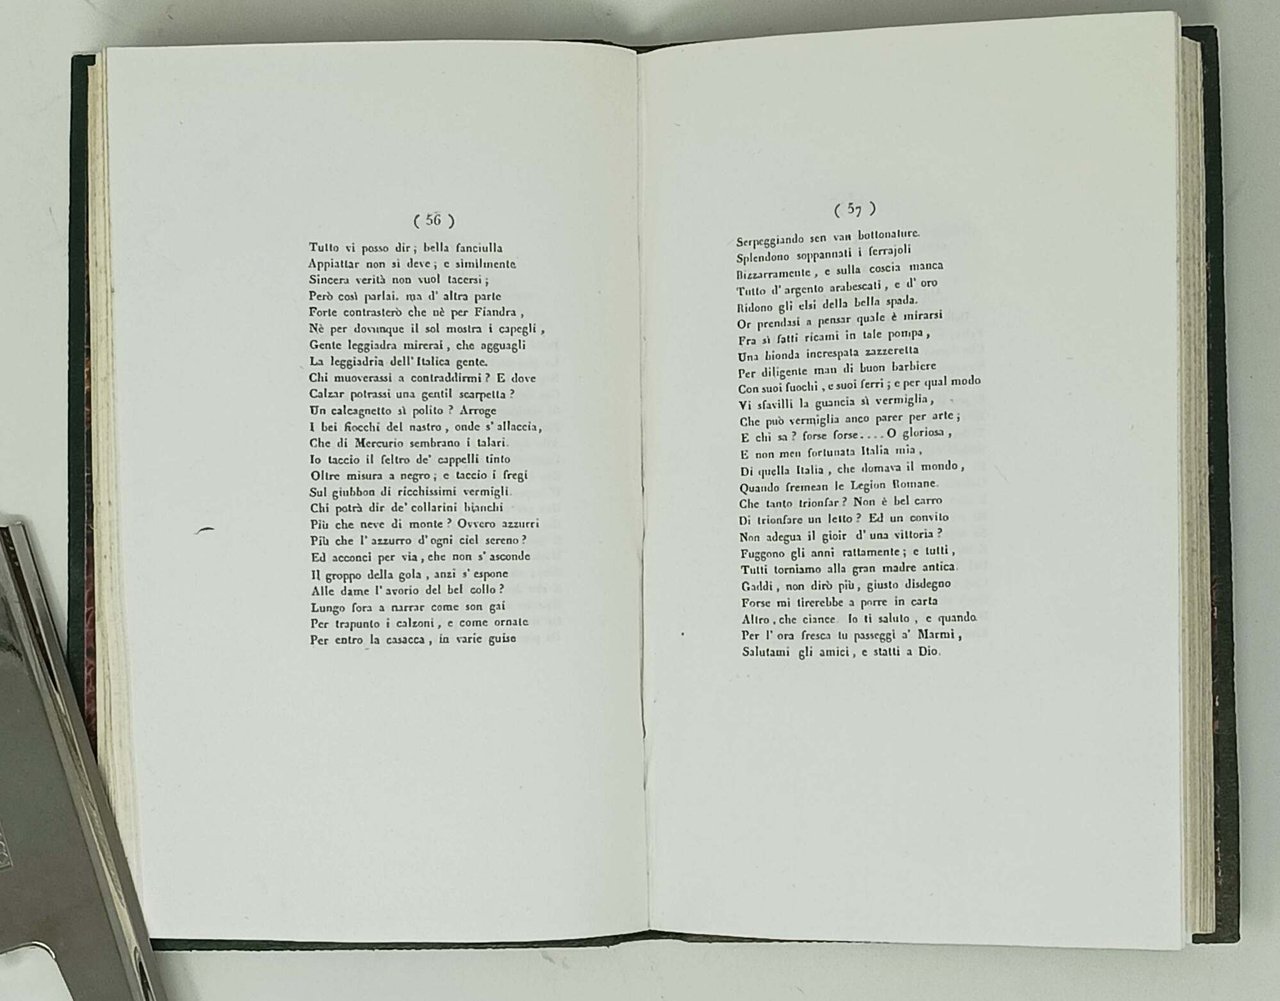 ( 56 )
Tutto vi posso dir ; bella fanciulla
Appiattar non si deve ; e similmente
Sincera verità non vuol tacersi ;
Però così parlai. ma d' altra parte
Forte contrasterò che nè per Fiandra ,
Nè per dovunque il sol mostra i capegli ,
Gente leggiadra mirerai , che agguagli
La leggiadria dell' Italica gente.
Chi muoverassi a contraddirmi ? E dove
Calzar potrassi una gentil scarpetta ?
Un calcagnetto sì polito ? Arroge
I bei fiocchi del nastro , onde s' allaccia ,
Che di Mercurio sembrano i talari.
Io taccio il feltro de' cappelli tinto
Oltre misura a negro ; e taccio i fregi
Sul giubbon di ricchissimi vermigli.
Chi potrà dir de' collarini bianchi
Più che neve di monte ? Ovvero azzurri
Più che l' azzurro d' ogni ciel sereno ?
Ed acconci per via , che non s' asconde
Il groppo della gola , anzi s' espone
Alle dame l' avorio del bel collo ?
Lungo fora a narrar come son gai
Per trapunto i calzoni , e come ornate
Per entro la casacca , in varie guise
( 57 )
Serpeggiando sen van bottonature.
Splendono soppannati i ferrajoli
Bizzarramente , e sulla coscia manca
Tutto d' argento arabescati , e d' oro
Ridono gli elsi della bella spada.
Or prendasi a pensar quale è mirarsi
Fra sì fatti ricami in tale pompa ,
Una bionda increspata zazzeretta
Per diligente man di buon barbiere
Con suoi fuochi , e suoi ferri ; e per qual modo
Vi sfavilli la guancia sì vermiglia ,
Che può vermiglia anco parer per arte ;
E chi sa ? forse forse .... O gloriosa ,
E non men fortunata Italia mia ,
Di quella Italia , che domava il mondo ,
Quando fremean le Legion Romane.
Che tanto trionfar ? Non è bel carro
Di trionfare un letto ? Ed un convito
Non adegua il gioir d' una vittoria ?
Fuggono gli anni rattamente ; e tutti ,
Tutti torniamo alla gran madre antica.
Gaddi , non dirò più , giusto disdegno
Forse mi tirerebbe a porre in carta
Altro , che ciance. Io ti saluto , e quando
Per l' ora fresca tu passeggi a' Marmi ,
Salutami gli amici , e statti a Dio.